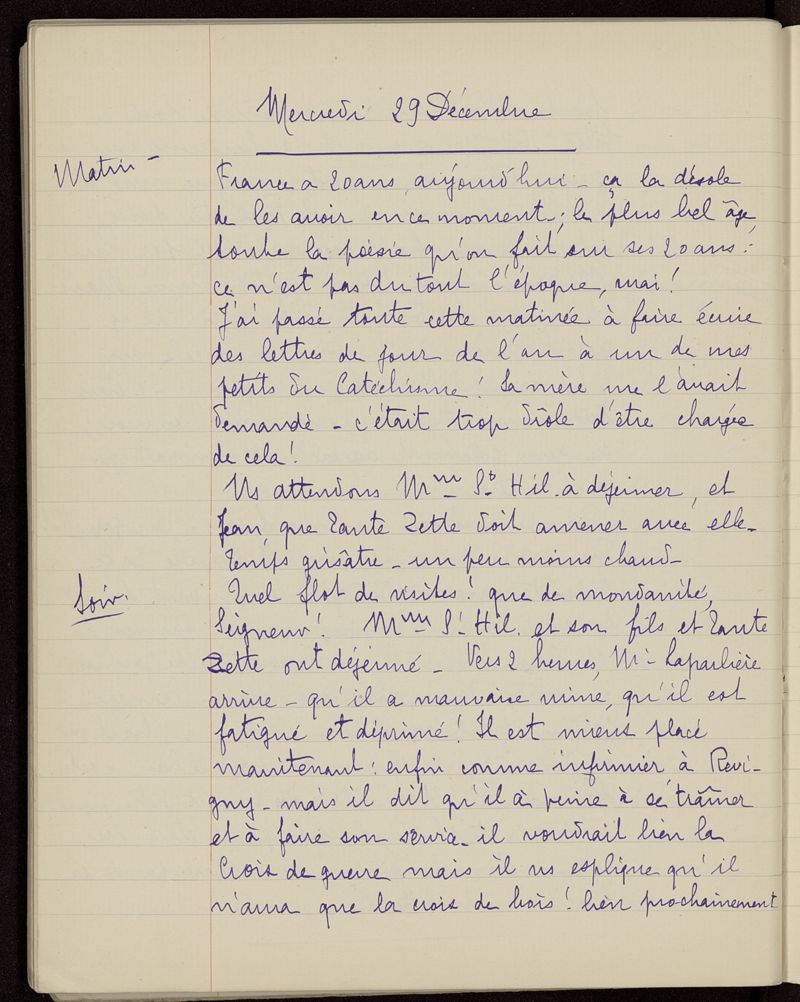 Mercredi 29 Décembre
Matin -
France a 20 ans, aujourd'hui - ça la désole
de les avoir en ce moment ; le plus bel âge,
toute la poésie qu'on fait sur ses 20 ans :
ce n'est pas du tout l'époque, mai !
J'ai passé toute cette matinée à faire écrire
des lettres de jour de l'an à un de mes
petits du Catéchisme ! Sa mère me l'avait
demandé - c'était trop drôle d'être chargée
de cela !
Ns attendons Mme St Hil. à déjeuner, et
Jean, que Tante Zette doit amener avec elle -
Temps grisâtre - un peu moins chaud -
Soir.
Quel flot de visites ! que de mondanité,
Seigneur ! Mme St Hil. et son fils et Tante
Zette ont déjeuné - Vers 2 heures, Mr Laparlière
arrive - qu'il a mauvaise mine, qu'il est
fatigué et déprimé ! Il est mieux placé
maintenant : enfin comme infirmier à Revi-
gny - mais il dit qu'il a peine à se traîner
et à faire son service - il voudrait bien la
Croix de guerre mais il ns explique qu'il
n'aura que la croix de bois ! bien prochainement